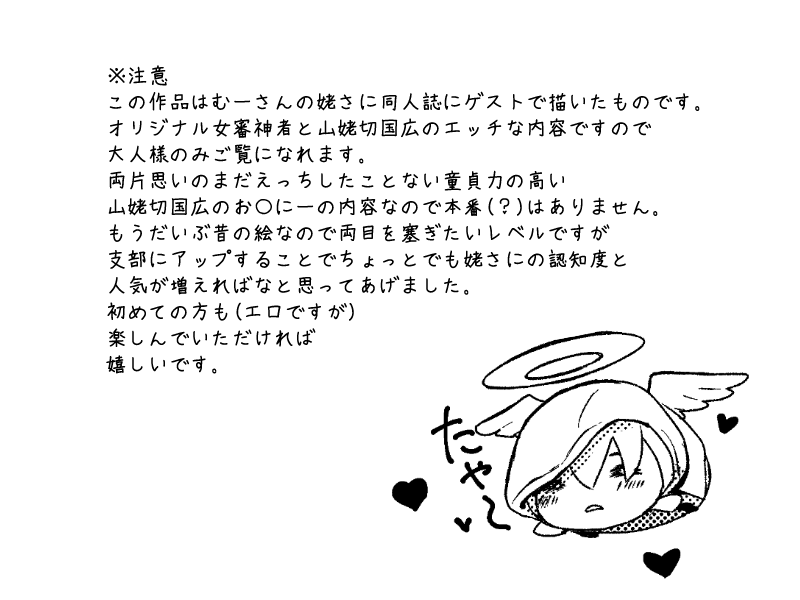 ※注意
この作品はむーさんの姥さに同人誌にゲストで描いたものです。
オリジナル女審神者と山姥切国広のエッチな内容ですので
大人様のみご覧になれます。
両片思いのまだえっちしたことない童貞力の高い
山姥切国広のお〇に一の内容なので本番(?)はありません。
もうだいぶ昔の絵なので両目を塞ぎたいレベルですが
支部にアップすることでちょっとでも姥さにの認知度と
人気が増えればなと思ってあげました。
初めての方も(エロですが)
楽しんでいただければ
嬉しいです。
たや〜